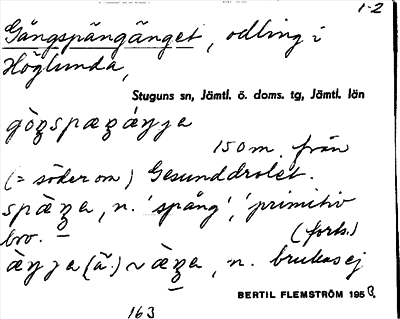 1-2
Gångspångänget, odling i
Höglunda,
Stuguns sn, Jämtl. ö. doms. tg, Jämtl. län
150 m. från
(= söder om) Gesunddrolet.
n. 'spång', 'primitiv
bro. (forts.)
n. brukas ej
BERTIL FLEMSTRÖM 195
163